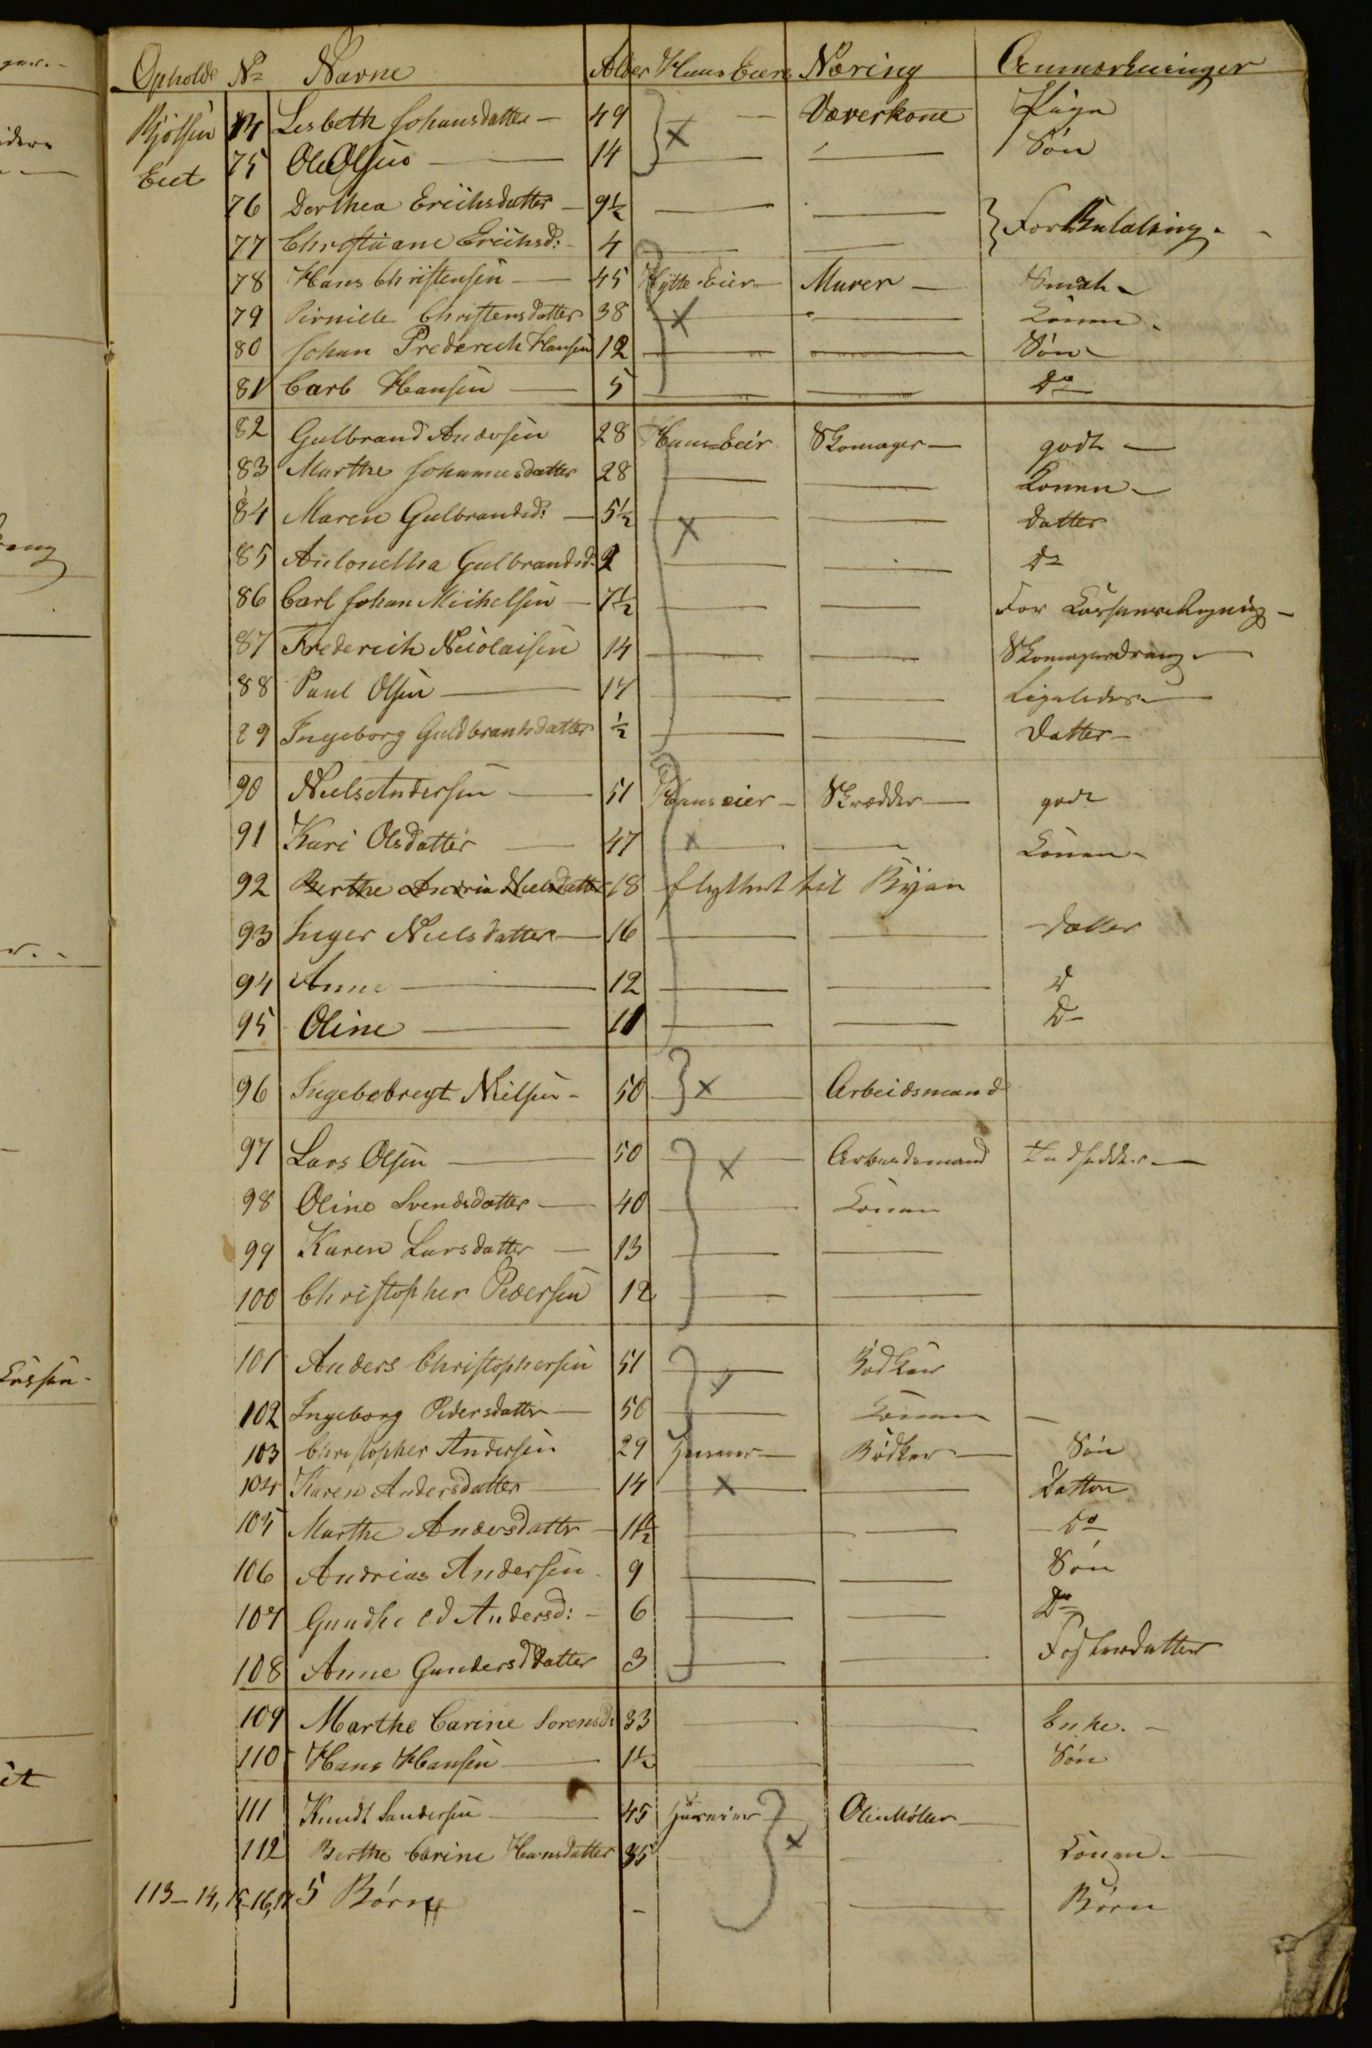 Ophold No Navne Alder Huus Eiere Næring Anmærkninger
Bjølsen 74 Lisbeth Johansdatter — 49 — Væverkone Pige
Eiet 75 Ole Olsen — 14 — — Søn
76 Dorthea Erichsdatter — 9½ — —
77 Christiane Erichsd: — 4 — — For Betaling
78 Hans Christensen — 45 Hytte Eier — Murer —
79 Pernille Christensdatter 38 — — Konen
80 Johan Frederich Hansen 12 — — Søn
81 Carl Hansen — 5 — — Do
82 Gulbrand Andersen 28 Huus Eier Skomager — godt —
83 Marthe Johannesdatter 28 — — Konen —
84 Maren Gulbrandsd: — 5½ — — Datter
85 Antonetha Gulbrandsd: 2 — — Do
86 Carl Johan Michelsen — 7½ — — For Kassens Regning —
87 Frederich Nicolaisen 14 — — Skomagerdreng —
88 Paul Olsen — 17 — — Ligeledes —
89 Ingeborg Guldbrandsdatter ½ — — Datter —
90 Niels Andersen — 51 Huuseier — Skrædder — godt
91 Kari Olsdatter — 47 — — Konen —
92 Berthe Andrea Nielsdatter 18 flyttet til Byen
93 Inger Nielsdatter — 16 — — Datter
94 Anne — 12 — — D
95 Oline — 11 — — D —
96 Ingebebregt Nielsen — 50 — Arbeidsmand
97 Lars Olsen — 50 — Arbeidsmand Indsidder —
98 Oline Svendsdatter — 40 — Konen
99 Karen Larsdatter — 13 — —
100 Christopher Pedersen 12 — —
101 Anders Christophersen 51 — Bødker
102 Ingeborg Pedersdatter — 50 — Konen —
103 Christopher Andersen 29 — Bødker — Søn
104 Karen Andersdatter — 14 — — Datter
105 Marthe Andersdatter — 11½ — — Do
106 Andrias Andersen — 9 — — Søn
107 Andersd: — 6 — — Do
108 Anne Gundersdatter 3 — — Fosterdatter
109 Marthe Carine Sorensd: 33 — — Enke. —
110 Hans Hansen — 1½ — — Søn
111 Knudt Sandersen — 45 Huuseier — Oliemøller —
112 Berthe Carine Hansdatter 35 — — Konen —
113 – 14, 15 – 16, 17 5 Børn — — Børn